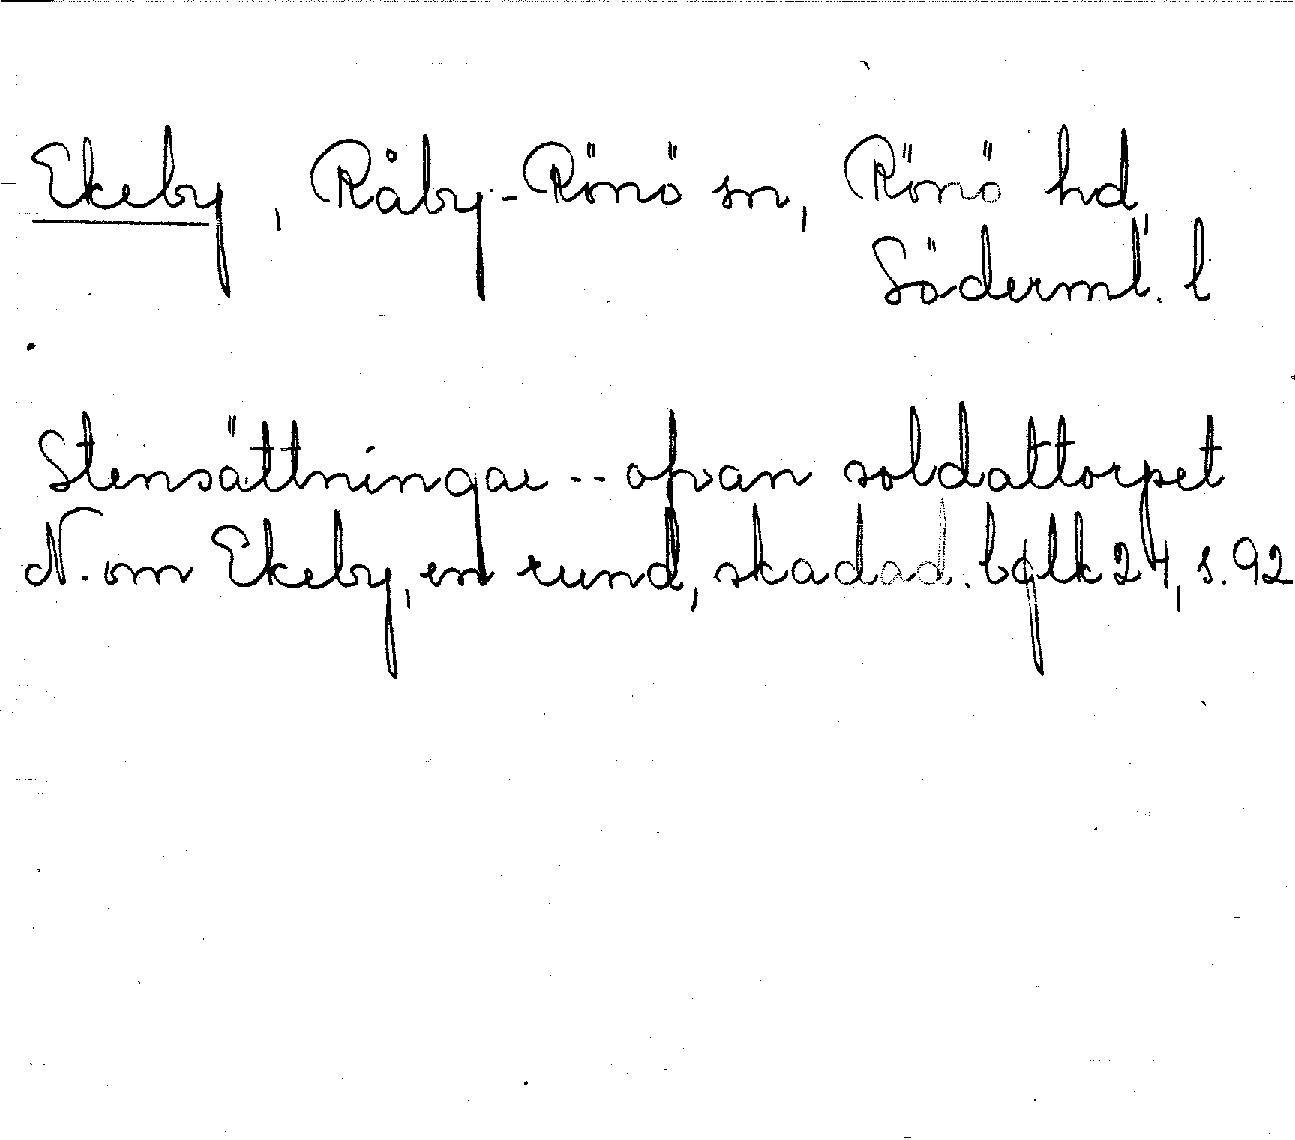 Ekeby, Råby-Rönö sn, Rönö hd,
Söderml. l
Stensättningar -- ofvan soldattorpet
N. om Ekeby, en rund, skadad.